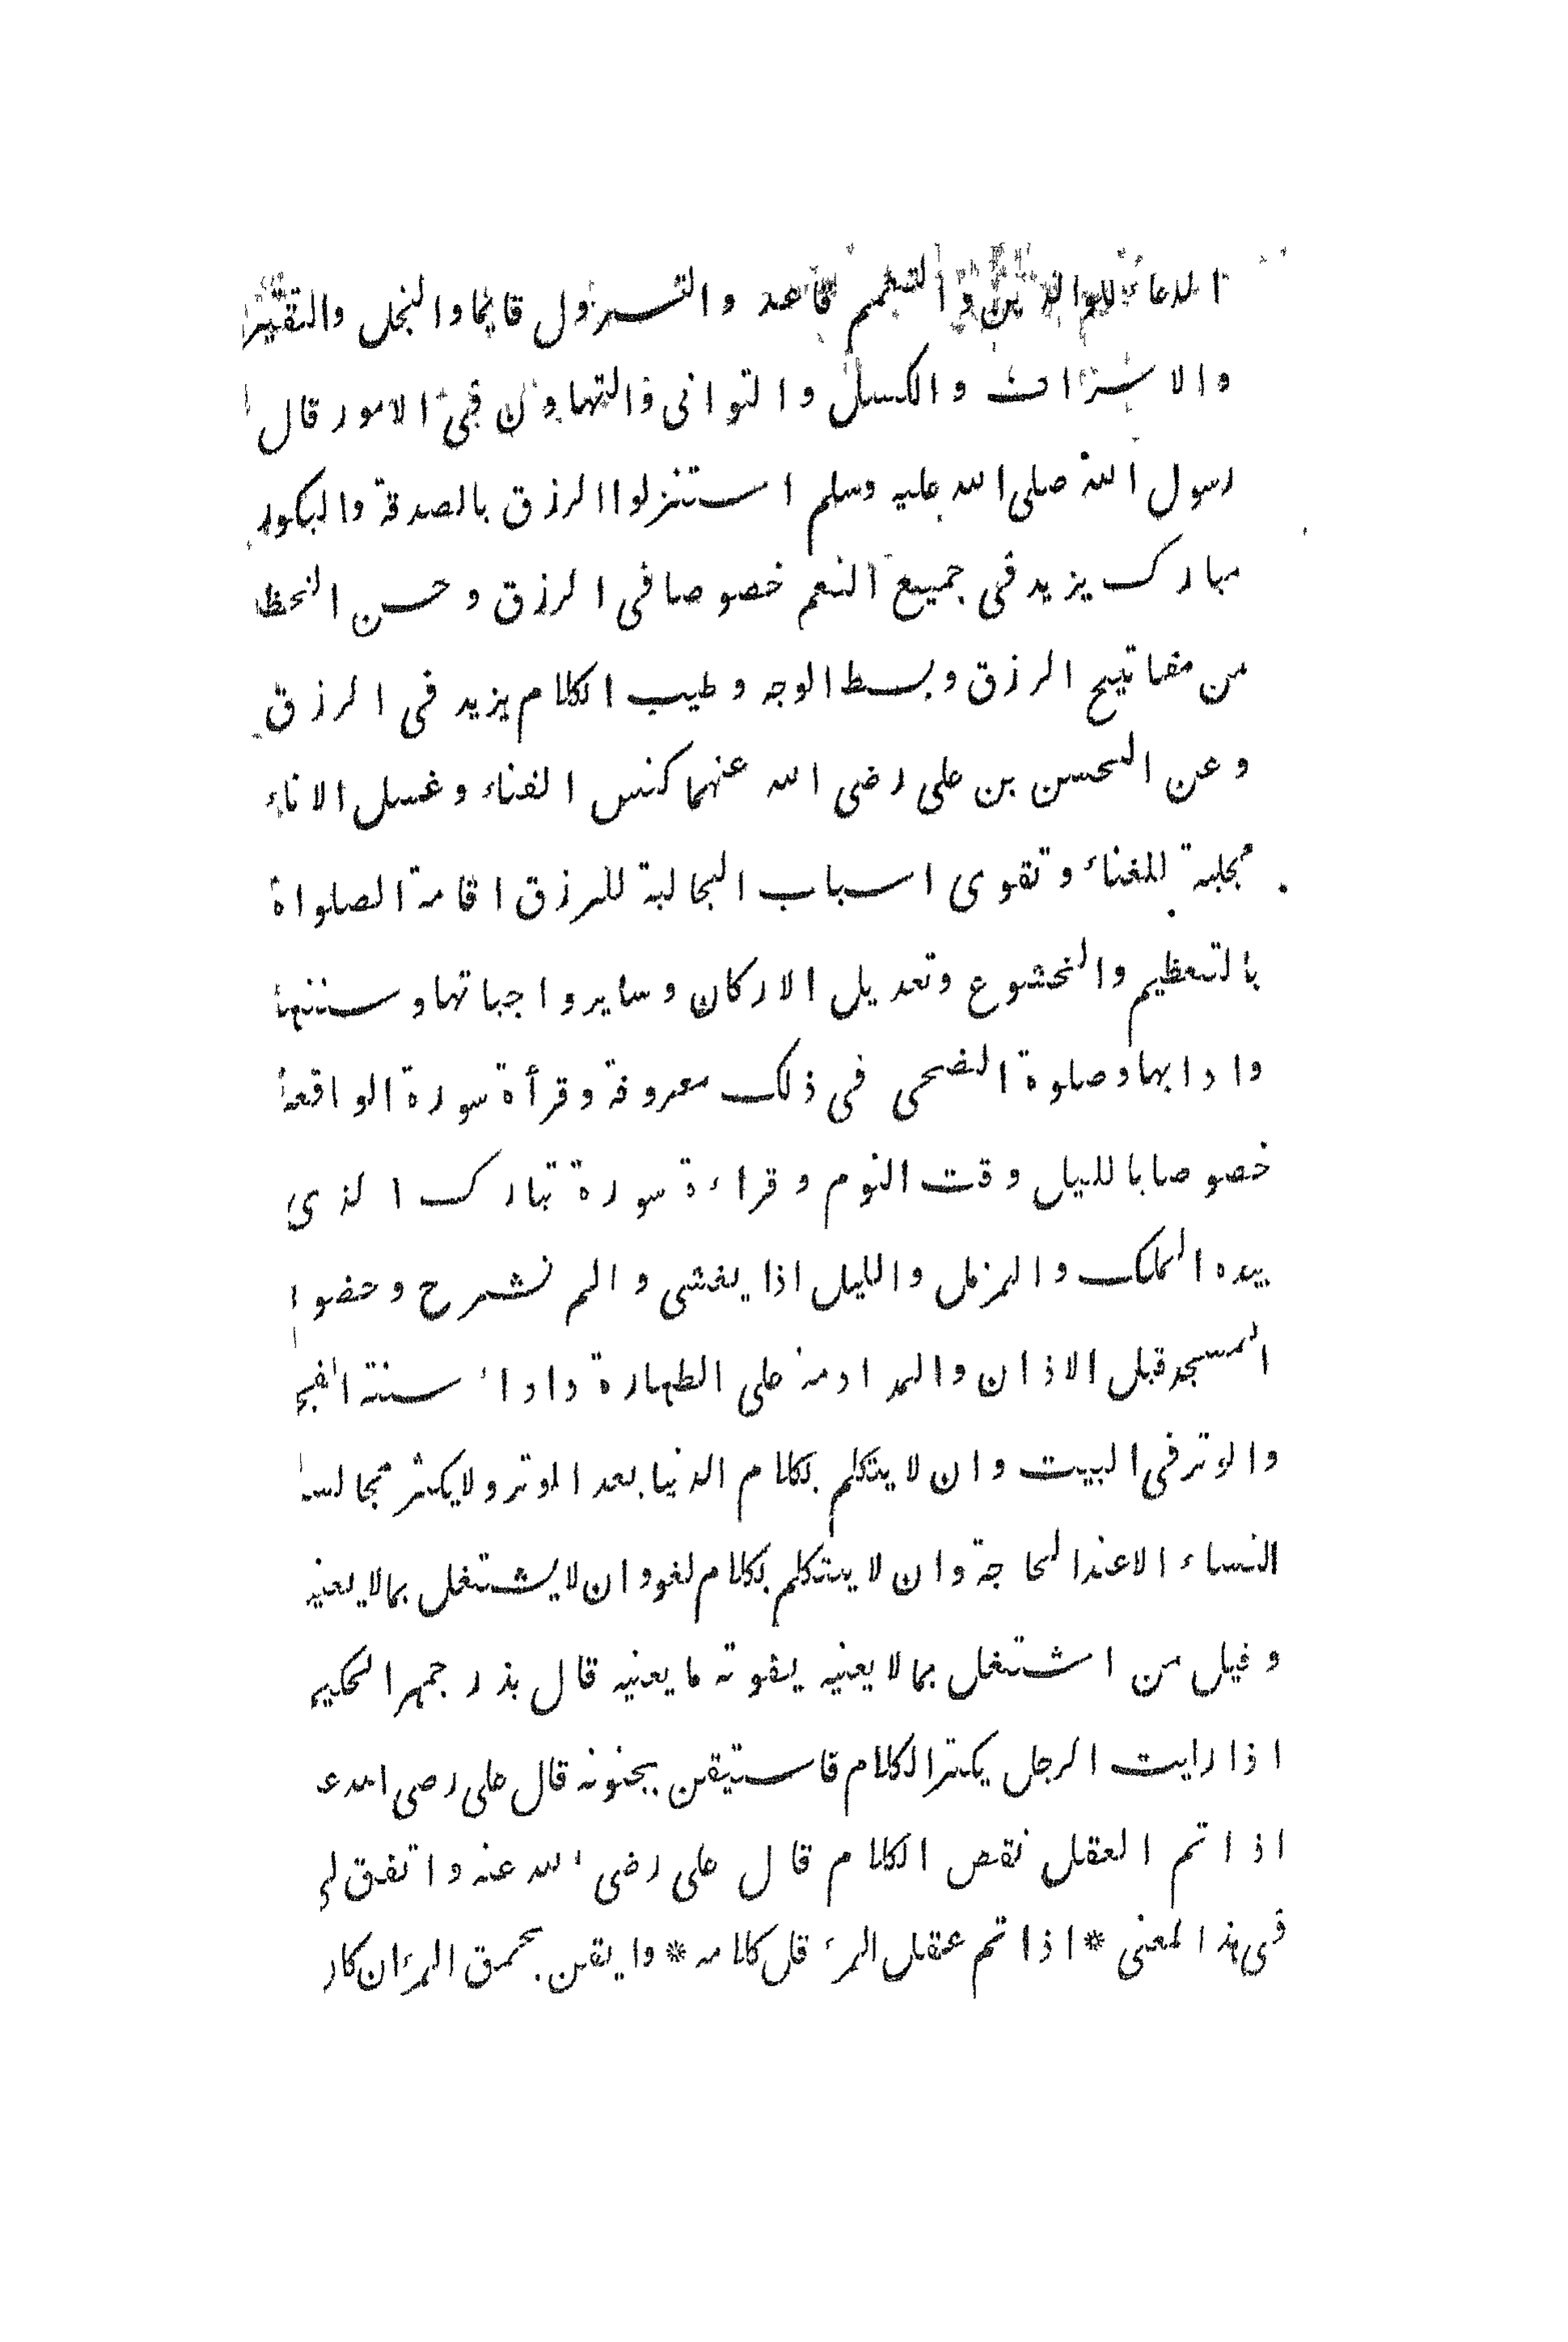 الدعاء للوالدين والتعمم قاعد والتسرول قايما والبخل والتقتير
والاسراف والكسل والتوانى والتهاون فى الامور قال
رسول الله صلى الله عليه وسلم استنزلوا الرزق بالصدقة والبكور
مبارك يزيد فى جميع النعم خصوصا فى الرزق وحسن الخط
من مفاتيح الرزق وبسط الوجه وطيب الكلام يزيد فى الرزق
وعن الحسن بن على رضى الله عنهما كنس الفناء وغسل الاناء
مجلبة للغناء وتقوى اسباب الجالبة للرزق اقامة الصلواة
بالتعظيم والخشوع وتعديل الاركان وساير واجباتها وسننها
وادابها وصلوة الضحى فى ذلك معروفة وقرأة سورة الواقعة
خصوصا بالليل وقت النوم وقراءة سورة تبارك الذى
بيده الملك والمزمل والليل اذا يغشى والم نشرح وحضو
المسجد قبل الاذان والمداومة على الطهارة واداء سنة الفجر
والوتر فى البيت وان لا يتكلم بكلام الدنيا بعد الوتر ولا يكثر مجالسة
النساء الا عند الحاجة وان لا يتكلم بكلام لغو وان لا يشتغل بما لا يعنيه
وقيل من اشتغل بما لا يعنيه يفوته ما يعنيه قال بذرجمهر الحكيم
اذا رايت الرجل يكثر الكلام فاستيقن بجنونه قال على رضى الله ع
اذا تم العقل نقص الكلام قال على رضى الله عنه واتفق لى
فى هذا المعنى * اذا تم عقل المرء قل كلامه * وايقن بحمق المرء ان كان